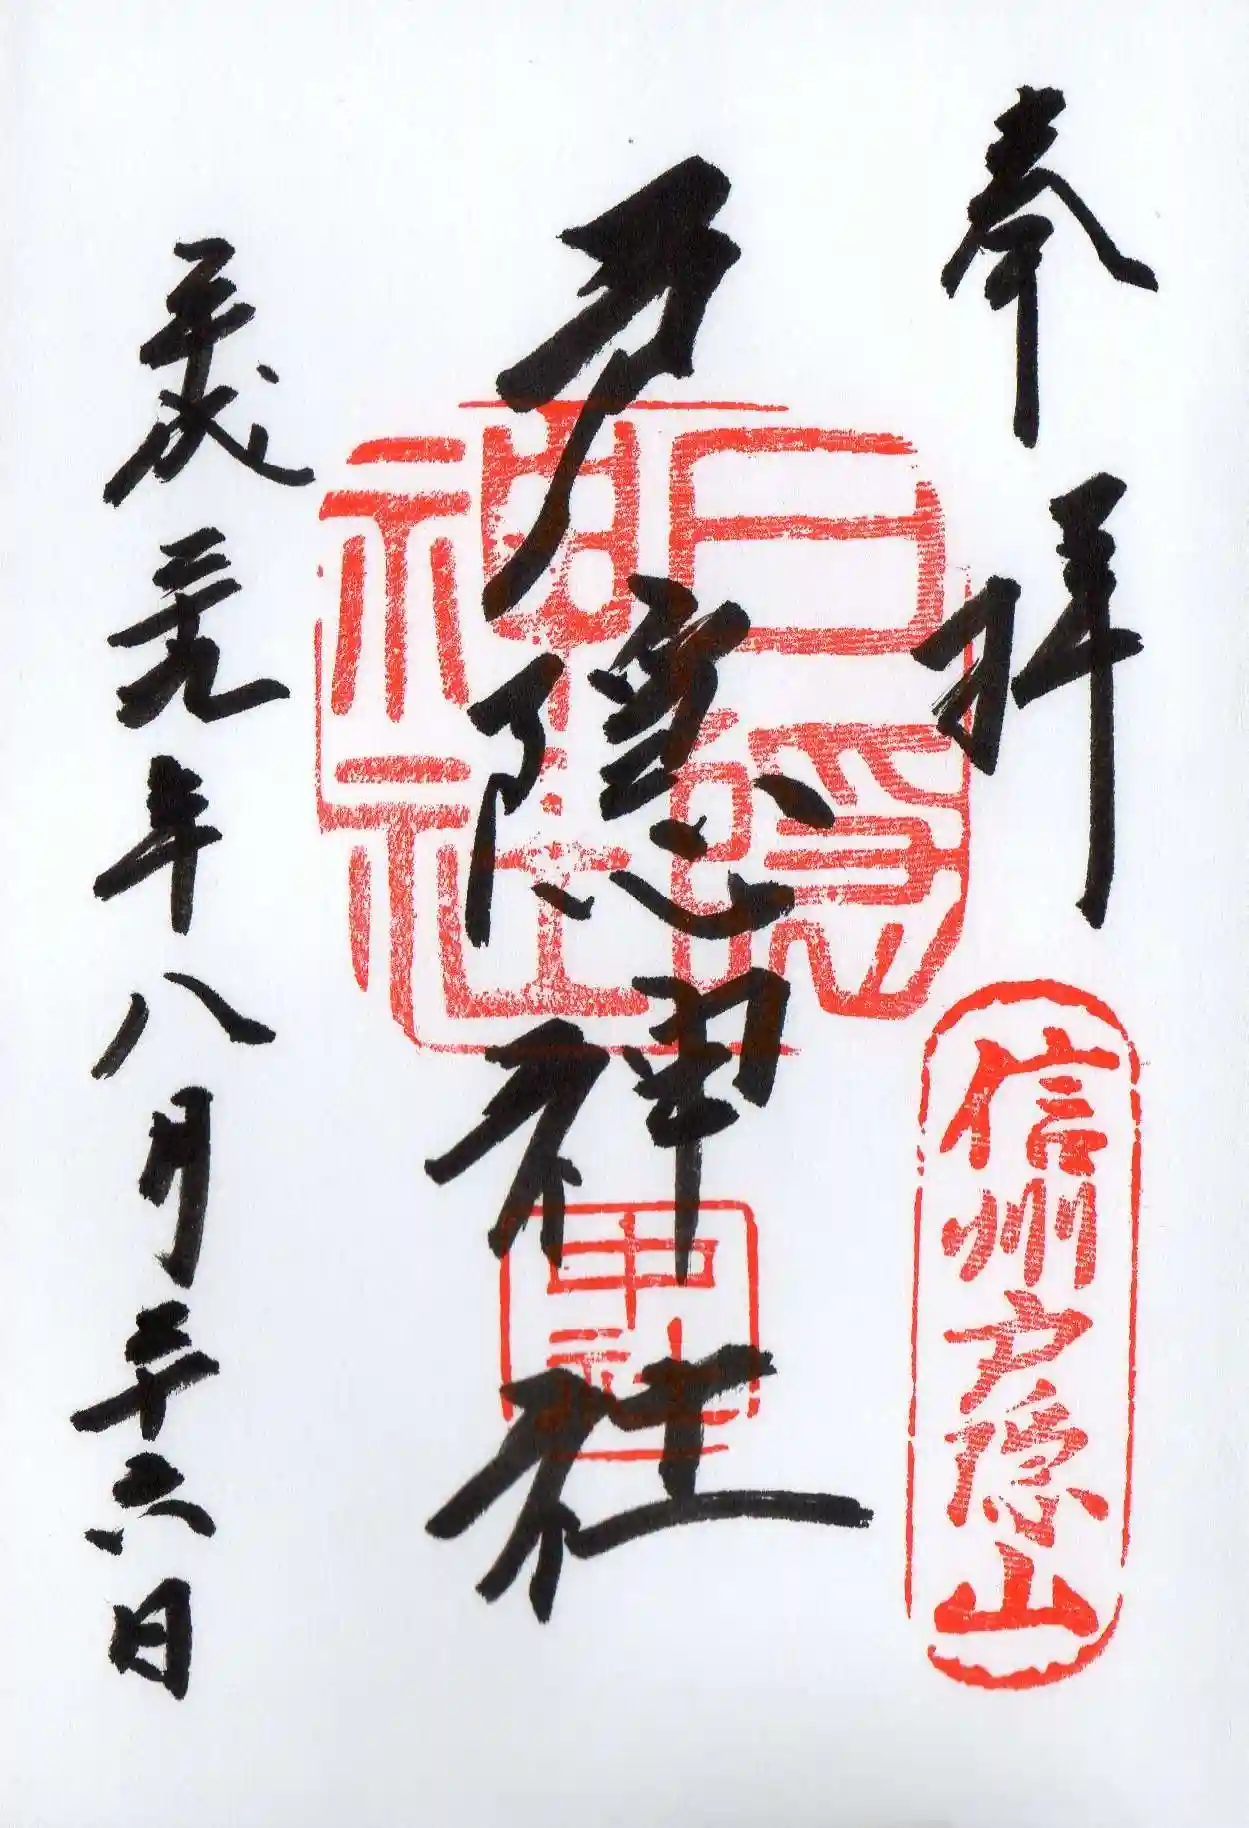 奉拝
信州戸隠山
戸隠神社
戸隠神社
中社
平成二十九年八月二十六日